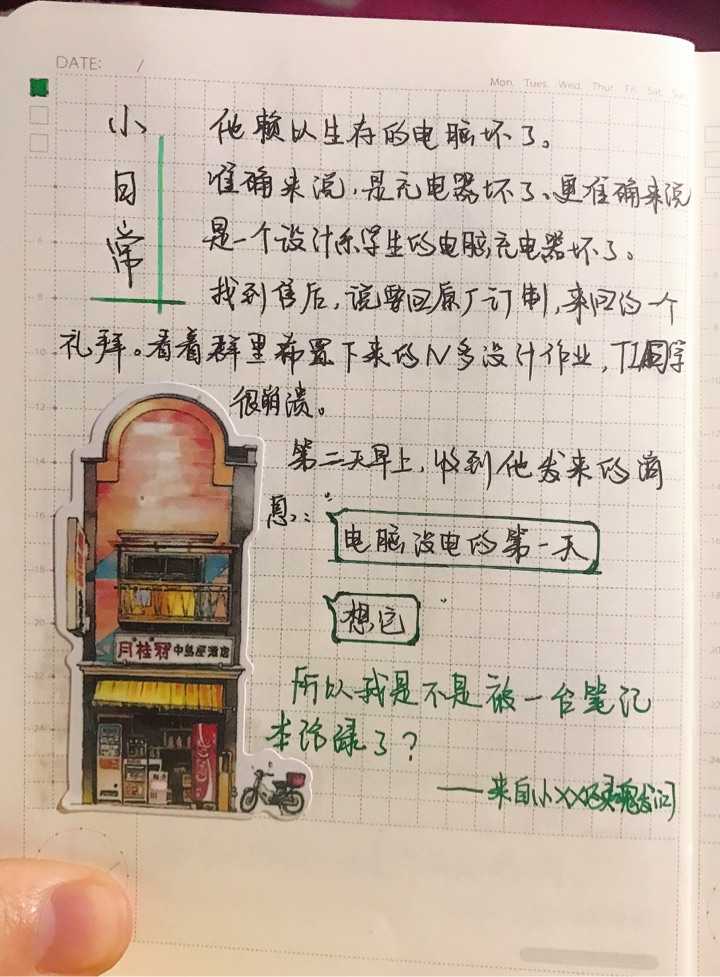 DATE: /
Mon. Tues. Wed. Thur. Fri. Sat.
小日常
他赖以生存的电脑坏了。
准确来说,是充电器坏了、更准确来说
是一个设计系学生的电脑充电器坏了。
找到售后,说要回原厂订制,来回的一个
礼拜。看着群里布置下来的N多设计作业,
很崩溃。
第二天早上,收到他发来的消
息:
电脑没电的第一天
想它
所以我是不是被一台笔记
本给绿了?
——来自小XX的灵魂发问
月桂冠 中島屋酒店